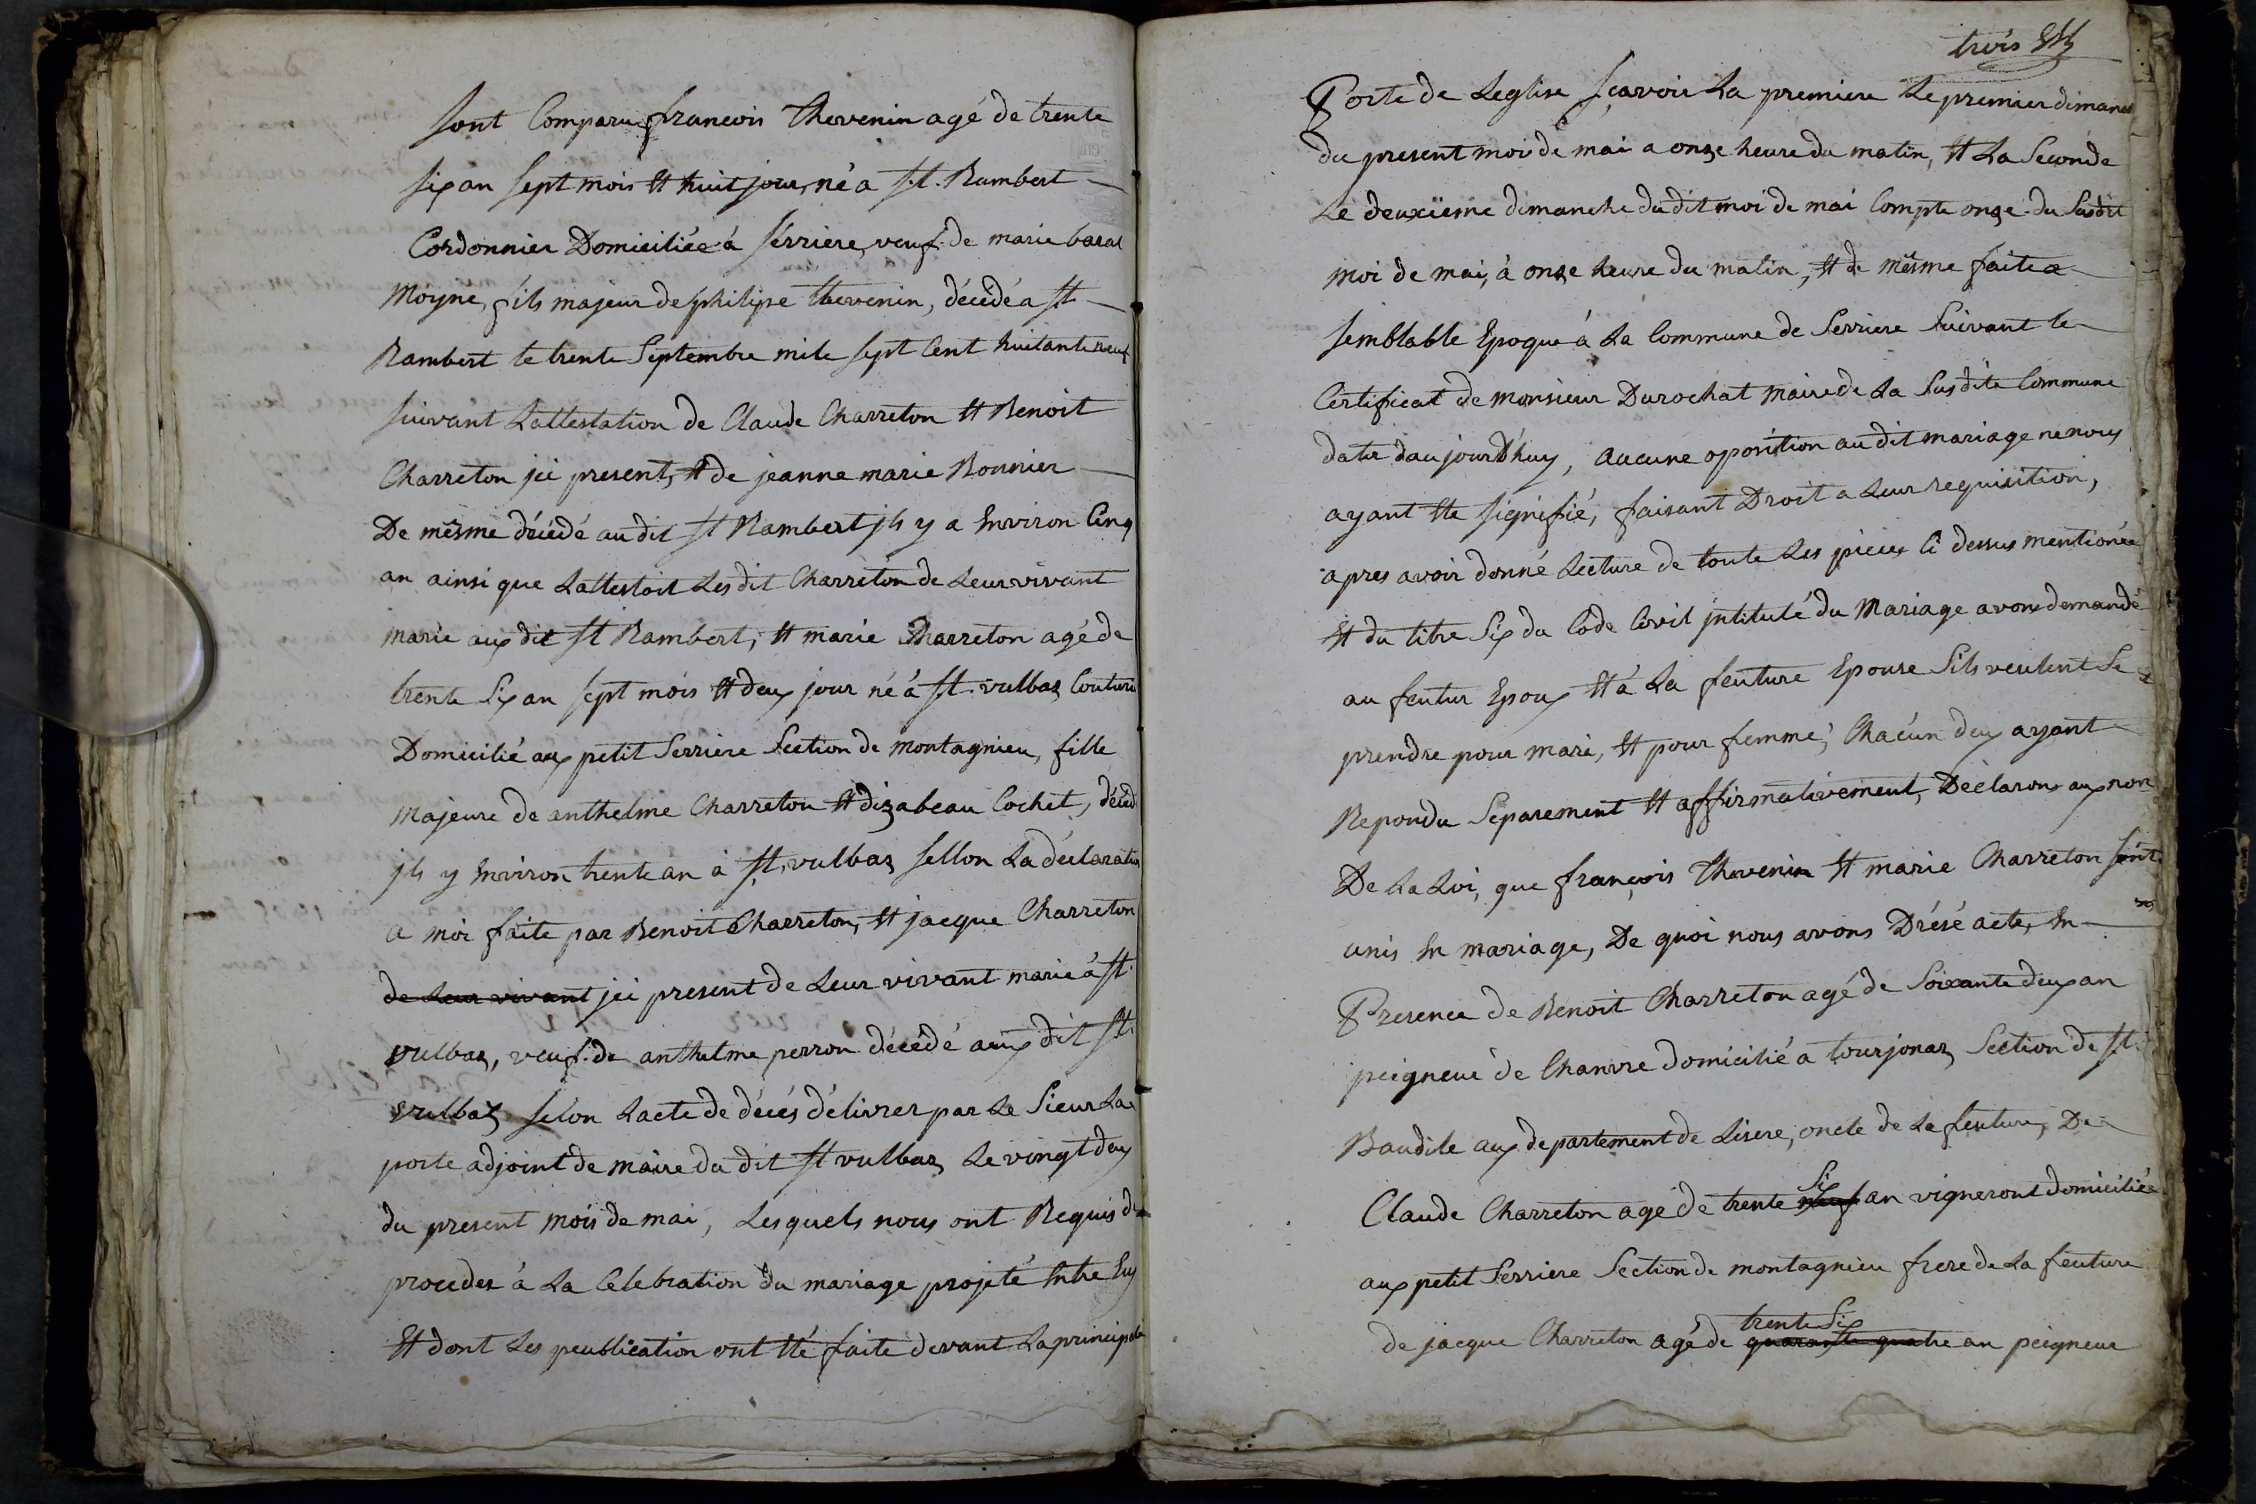 sont Comparu françois Thevenin agé de trente
six an sept mois Et huit jour, né a St. Rambert
Cordonnier Domiciliée á sérriere, veuf. de marie
Moyne, fils majeur de philipe thevenin, décédé a St
Rambert le trente Septembre mile sept Cent huitante neuf
suivant Lattestation de Claude Charreton Et Benoit
Charreton jci present, Et de jeanne marie Bonnier
De mêsme décédé au dit St Rambert jls y a Environ Cinq
an ainsi que Lattestoit Les dit Charreton de Leur vivant
marie aux dit St Rambert, Et marie Charreton agé de
trente Six an sept mois Et deux jour né á St. vulbaz Couturie
Domicilié aux petit Serriere Section de montagnieu, fille
Majeure de anthelme Charreton Et dizabeau Cochet, décéd
jls y Environ trente an à St. vulbaz sellon La déclaration
a moi faite par Benoit Charreton, Et jacque Charreton
de Leur vivant jci present de Leur vivant marié á St.
vulbaz, veuf. de anthelme perron décédé aux dit St.
vulbaz selon Lacte de décés délivrer par Le Sieur La
porte adjoint de maire du dit St vulbaz Le vingt deux
du present mois de mai, Lesquels nous ont Requis de
proceder á La Celebration du mariage projeté Entre Eux
Et dont Les peublication ont Eté faite devant La principale
trois
Porte de Leglise sçavoir La premiere Le premier dimanche
du present moi de mai a onze heure du matin, Et La Seconde
Le deuxiieme dimanche du dit moi de mai Compte onze du Susdit
moi de mai, á onze heure du matin, Et de mêsme faite a
semblable Epoque á La Commune de Serriere Suivant le
Certificat de monsieur Durochat maire de La Susdite Commune
daté daujourdhuy, aucune oposition au dit mariage ne nous
ayant Ete signifié, faisant Droit a Leur requisition,
apres avoir donné Lecture de toute Les pieces Ci dessus mentionée
Et du titre Six du Code Civil jntitulé du Mariage avons demandé
au feutur Epoux Et á La feuture Epouse Sils veulent Se
prendre pour mari, Et pour femme, Chacun deux ayant
Repondu Separement Et affirmativement, Déclarons aux nom
De La Loi, que françois Thevenin Et marie Charreton sont
unis En mariage, De quoi nous avons Drésé acte, En
Presence de Benoit Charreton agé de Soixante deux an
peigneur de Chanvre domicilié a tourjonaz Section de St.
Baudile aux departement de Lisere, oncle de La feuture, De
Six
Claude Charreton agé de trente neuf an vigneront domiciliée
aux petit Serriere Section de montagnieu frere de La feuture
trente Six
de jacque Charreton agé de quarante quatre an peigneur